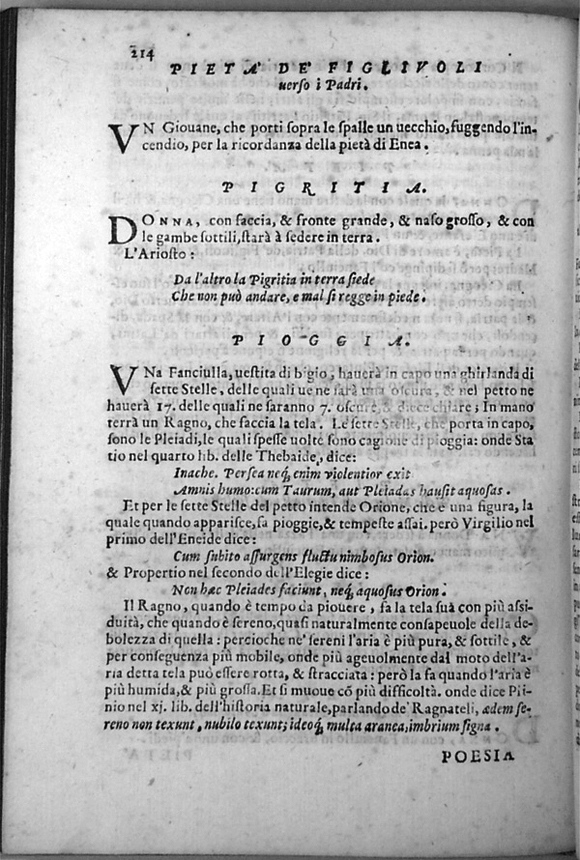 214
PIETA' DE' FIGLIVOLI
uerso i Padri.
VN Giouane, che porti sopra le spalle un uecchio, fuggendo l'in-
cendio, per la ricordanza della pietà di Enea.
PIGRITIA.
DONNA, con faccia, & fronte grande, & naso grosso, & con
le gambe sottili, starà à sedere in terra.
L'Ariosto:
Da l'altro la Pigritia in terra siede
Che non può andare, e mal si regge in piede.
PIOGGIA.
VNa Fanciulla, uestita di bigio, hauerà in capo una ghirlanda di
sette Stelle, delle quali ue ne sarà una oscura, & nel petto ne
hauerà 17. delle quali ne saranno 7. oscure, & diece chiare; In mano
terrà un Ragno, che faccia la tela. Le sette Stelle, che porta in capo,
sono le Pleiadi, le quali spesse uolte sono cagione di pioggia: onde Sta
tio nel quarto lib. delle Thebaide, dice:
Inache. Persea neq; enim violentior exit
Amnis humo: cum Taurum, aut Pleiadas hausit aquosas.
Et per le sette Stelle del petto intende Orione, che è una figura, la
quale quando apparisce, fa pioggie, & tempeste assai. però Virgilio nel
primo dell'Eneide dice:
Cum subito assurgens fluctu nimbosus Orion.
& Propertio nel secondo dell'Elegie dice:
Non hæc Pleiades faciunt, neq; aquosus Orion.
Il Ragno, quando è tempo da piouere, fa la tela suà con più assi-
duità, che quando è sereno, quasi naturalmente consapeuole della de-
bolezza di quella: percioche ne' sereni l'aria è più pura, & sottile, &
per conseguenza più mobile, onde più ageuolmente dal moto dell'a-
ria detta tela può essere rotta, & stracciata: però la fa quando l'aria è
più humida, & più grossa. Et si muoue cõ più difficoltà. onde dice Pli-
nio nel xj. lib. dell'historia naturale, parlando de' Ragnateli, ædem se-
reno non texunt, nubilo texunt; ideoq; multa aranea, imbrium signa.
POESIA